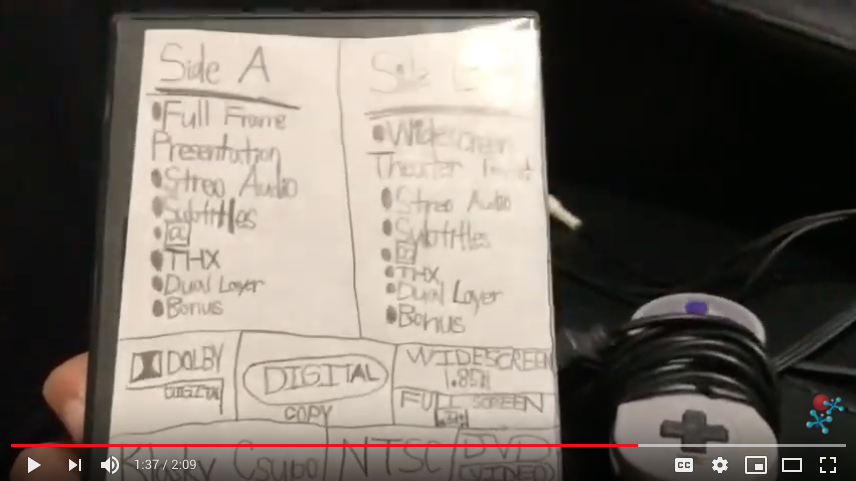 Side A
Full Frame
Presentation
Streo Audio
Subtitles
CC
THX
Dual Layer
Bonus
Side
Widescreen
Theater
Streo Audio
Subtitles
CC
THX
Dual Layer
Bonus
DOLBY
DIGITAL
DIGITAL
COPY
WIDESCREEN
1.85:1
FULL SCREEN
Klasky Csupo
NTSC
DVD
VIDEO
1:37 / 2:09
CC